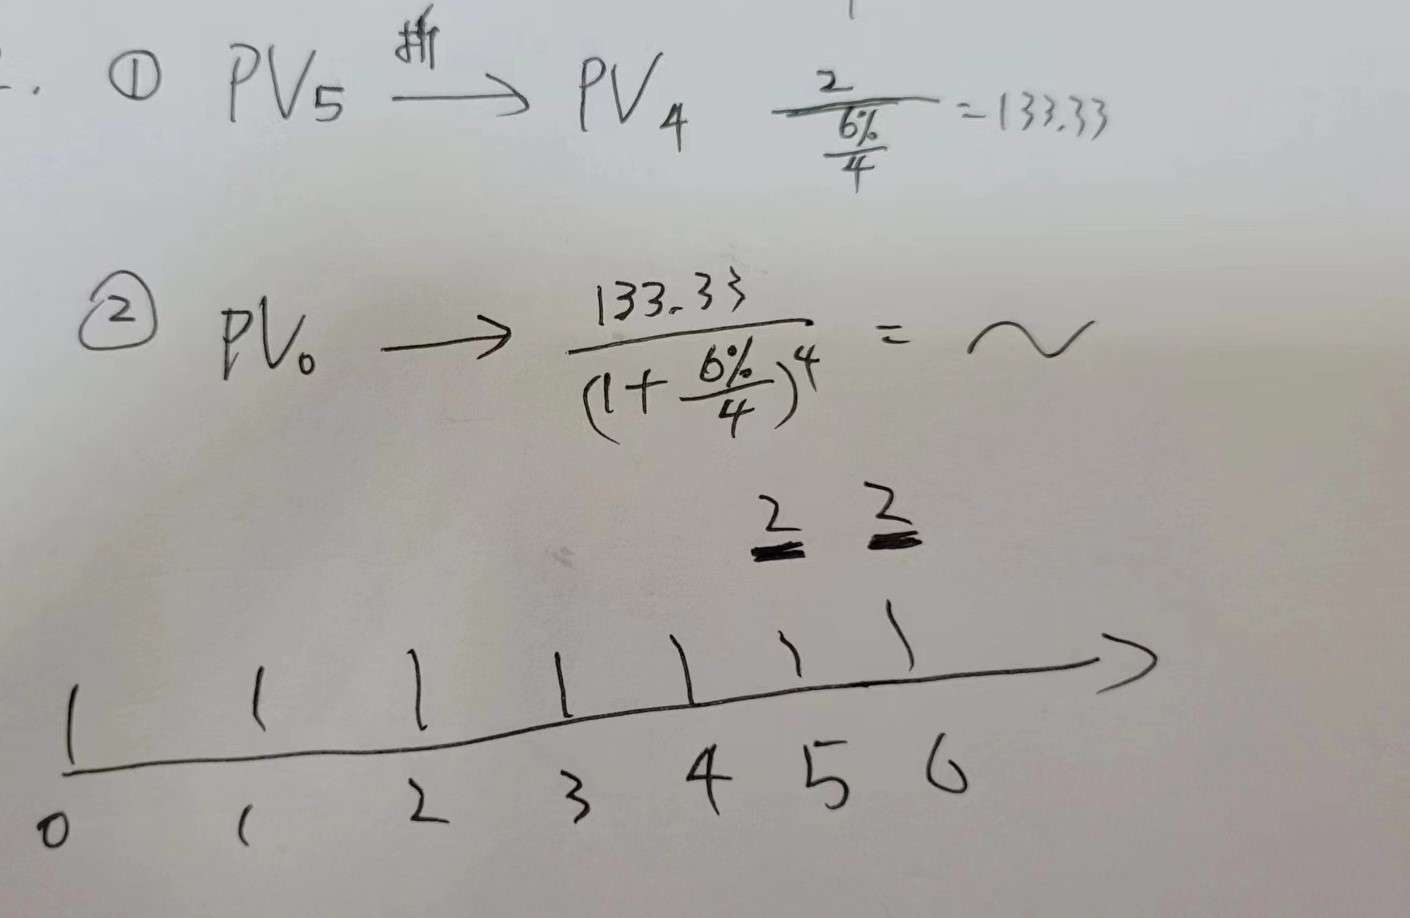 ① PV₅ → PV₄ 2/(6%/4) = 133.33
② PV₀ → 133.33/(1+6%/4)⁴ = ~
2 2
0 1 2 3 4 5 6